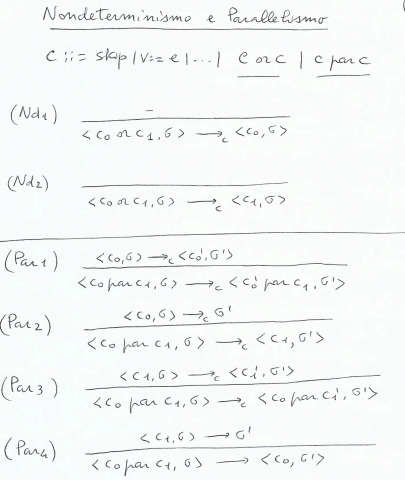 Nondeterminismo e Parallelismo
C ::= skip | V := e | ... | C or C | C par C
(Nd1) —
<c0 or c1, σ> →c <c0, σ>
(Nd2)
<c0 or c1, σ> →c <c1, σ>
(Par1) <c0, σ> →c <c0', σ'>
<c0 par c1, σ> →c <c0' par c1, σ'>
(Par2) <c0, σ> →c σ'
<c0 par c1, σ> →c <c1, σ'>
(Par3) <c1, σ> →c <c1', σ'>
<c0 par c1, σ> →c <c0 par c1', σ'>
(Par4) <c1, σ> → σ'
<c0 par c1, σ> → <c0, σ'>